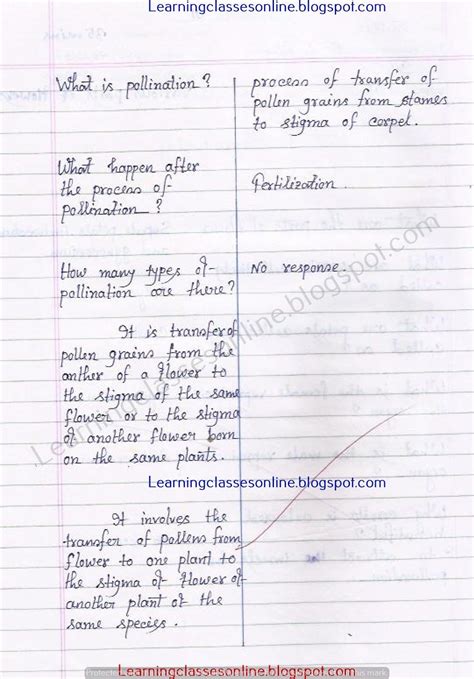 Learningclassesonline.blogspot.com
What is pollination?
process of transfer of
pollen grains from stames
to stigma of corpel.
What happen after
the process of
pollination?
Fertilization.
How many types of
pollination are there?
No response.
It is transfer of
pollen grains from the
anther of a flower to
the stigma of the same
flower or to the stigma
of another flower born
on the same plants.
Learningclassesonline.blogspot.com
Learningclassesonline.blogspot.com
It involves the
transfer of pollens from
flower to one plant to
the stigma of flower of
another plant of the
same species.
Learningclassesonline.blogspot.com